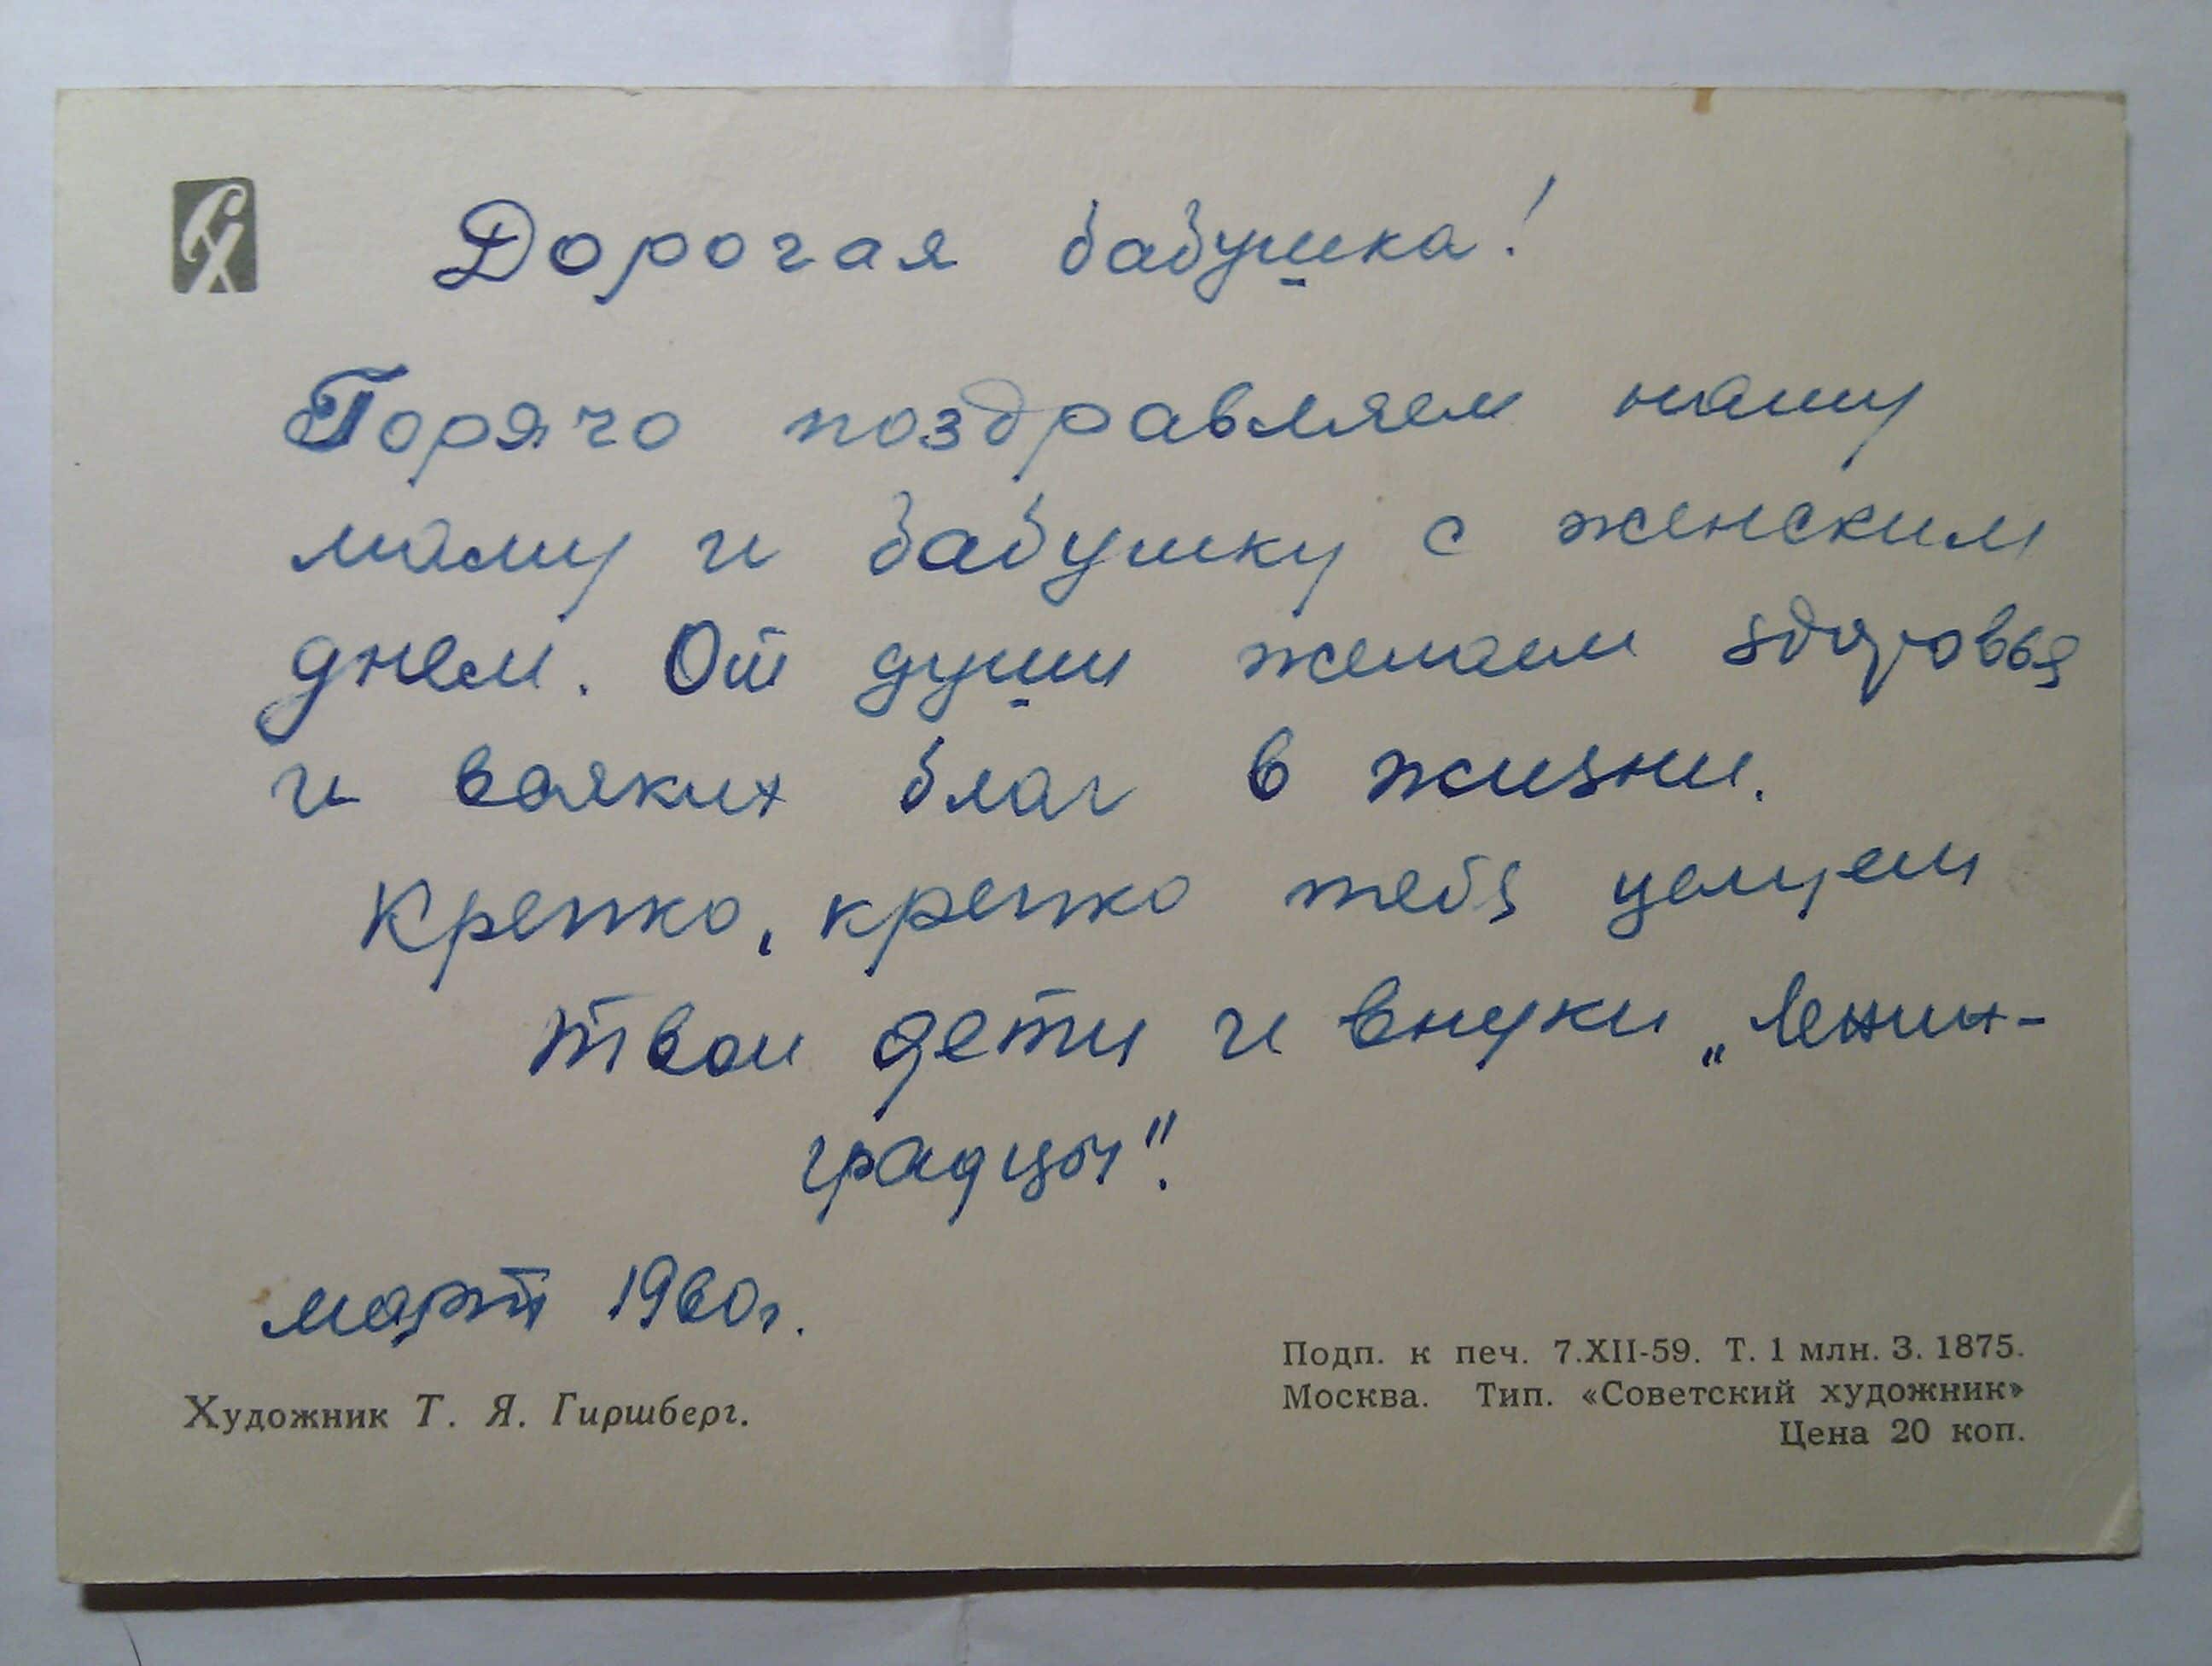 СХ
Дорогая бабушка!
Горячо поздравляем нашу
маму и бабушку с женским
днем. От души желаем здоровья
и всяких благ в жизни.
Крепко, крепко тебя целуем
твои дети и внуки „Ленин-
градцы".
март 1960г.
Художник Т. Я. Гиршберг.
Подп. к печ. 7.XII-59. Т. 1 млн. З. 1875.
Москва. Тип. «Советский художник»
Цена 20 коп.